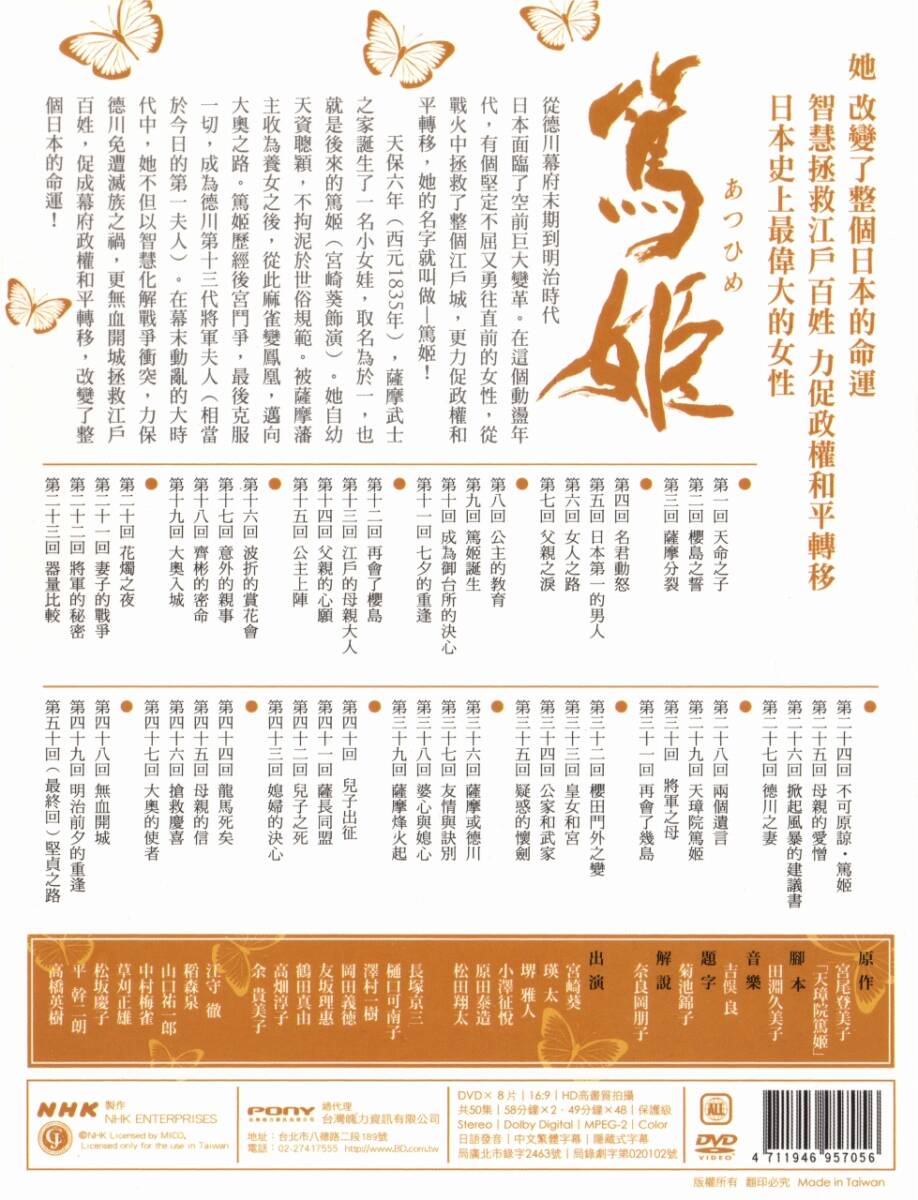 她 改變了整個日本的命運
智慧拯救江戶百姓 力促政權和平轉移
日本史上最偉大的女性
篤姬
あつひめ
從德川幕府末期到明治時代
日本面臨了空前巨大變革。在這個動盪年
代，有個堅定不屈又勇往直前的女性，從
戰火中拯救了整個江戶城，更力促政權和
平轉移，她的名字就叫做—篤姬！
天保六年（西元1835年），薩摩武士
之家誕生了一名小女娃，取名為於一，也
就是後來的篤姬（宮崎葵飾演）。她自幼
天資聰穎，不拘泥於世俗規範。被薩摩藩
主收為養女之後，從此麻雀變鳳凰，邁向
大奧之路。篤姬歷經後宮鬥爭，最後克服
一切，成為德川第十三代將軍夫人（相當
於今日的第一夫人）。在幕末動亂的大時
代中，她不但以智慧化解戰爭衝突，力保
德川免遭滅族之禍，更無血開城拯救江戶
百姓，促成幕府政權和平轉移，改變了整
個日本的命運！
第一回 天命之子
第二回 櫻島之誓
第三回 薩摩分裂
第四回 名君動怒
第五回 日本第一的男人
第六回 女人之路
第七回 父親之淚
第八回 公主的教育
第九回 篤姬誕生
第十回 成為御台所的決心
第十一回 七夕的重逢
第十二回 再會了櫻島
第十三回 江戶的母親大人
第十四回 父親的心願
第十五回 公主上陣
第十六回 波折的賞花會
第十七回 意外的親事
第十八回 齊彬的密命
第十九回 大奧入城
第二十回 花燭之夜
第二十一回 妻子的戰爭
第二十二回 將軍的秘密
第二十三回 器量比較
第二十四回 不可原諒・篤姬
第二十五回 母親的愛憎
第二十六回 掀起風暴的建議書
第二十七回 德川之妻
第二十八回 兩個遺言
第二十九回 天璋院篤姬
第三十回 將軍之母
第三十一回 再會了幾島
第三十二回 櫻田門外之變
第三十三回 皇女和宮
第三十四回 公家和武家
第三十五回 疑惑的懷劍
第三十六回 薩摩或德川
第三十七回 友情與訣別
第三十八回 婆心與媳心
第三十九回 薩摩烽火起
第四十回 兒子出征
第四十一回 薩長同盟
第四十二回 兒子之死
第四十三回 媳婦的決心
第四十四回 龍馬死矣
第四十五回 母親的信
第四十六回 搶救慶喜
第四十七回 大奧的使者
第四十八回 無血開城
第四十九回 明治前夕的重逢
第五十回（最終回）堅貞之路
原作
宮尾登美子
「天璋院篤姬」
腳本
田淵久美子
音樂
吉俣 良
題字
菊池錦子
解說
奈良岡朋子
出演
宮崎葵
瑛 太
堺 雅人
小澤征悅
原田泰造
松田翔太
長塚京三
樋口可南子
澤村一樹
岡田義德
友坂理惠
鶴田真由
高畑淳子
余 貴美子
江守 徹
稻森泉
山口祐一郎
中村梅雀
草刈正雄
松坂慶子
平 幹二朗
高橋英樹
NHK 製作
NHK ENTERPRISES
©NHK Licensed by MICO,
Licensed only for the use in Taiwan
PONY 總代理
台灣龐力資訊有限公司
地址：台北市八德路二段189號
電話：02-27417555 http://www.BD.com.tw
DVD× 8 片 | 16:9 | HD高畫質拍攝
共50集 | 58分鐘×2・49分鐘×48 | 保護級
Stereo | Dolby Digital | MPEG-2 | Color
日語發音 | 中文繁體字幕 | 隱藏式字幕
局廣北市錄字2463號 | 局錄劇字第020102號
ALL
DVD
VIDEO
4 711946 957056
版權所有 翻印必究 Made in Taiwan